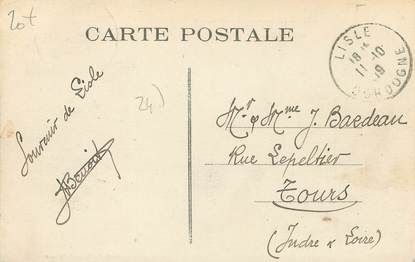 20f
CARTE POSTALE
LISLE
18 15
11-10
19
DORDOGNE
24)
Souvenir de Lisle
JBenoist
Mr & Mme J. Bardeau
Rue Lepeltier
Tours
(Indre & Loire)